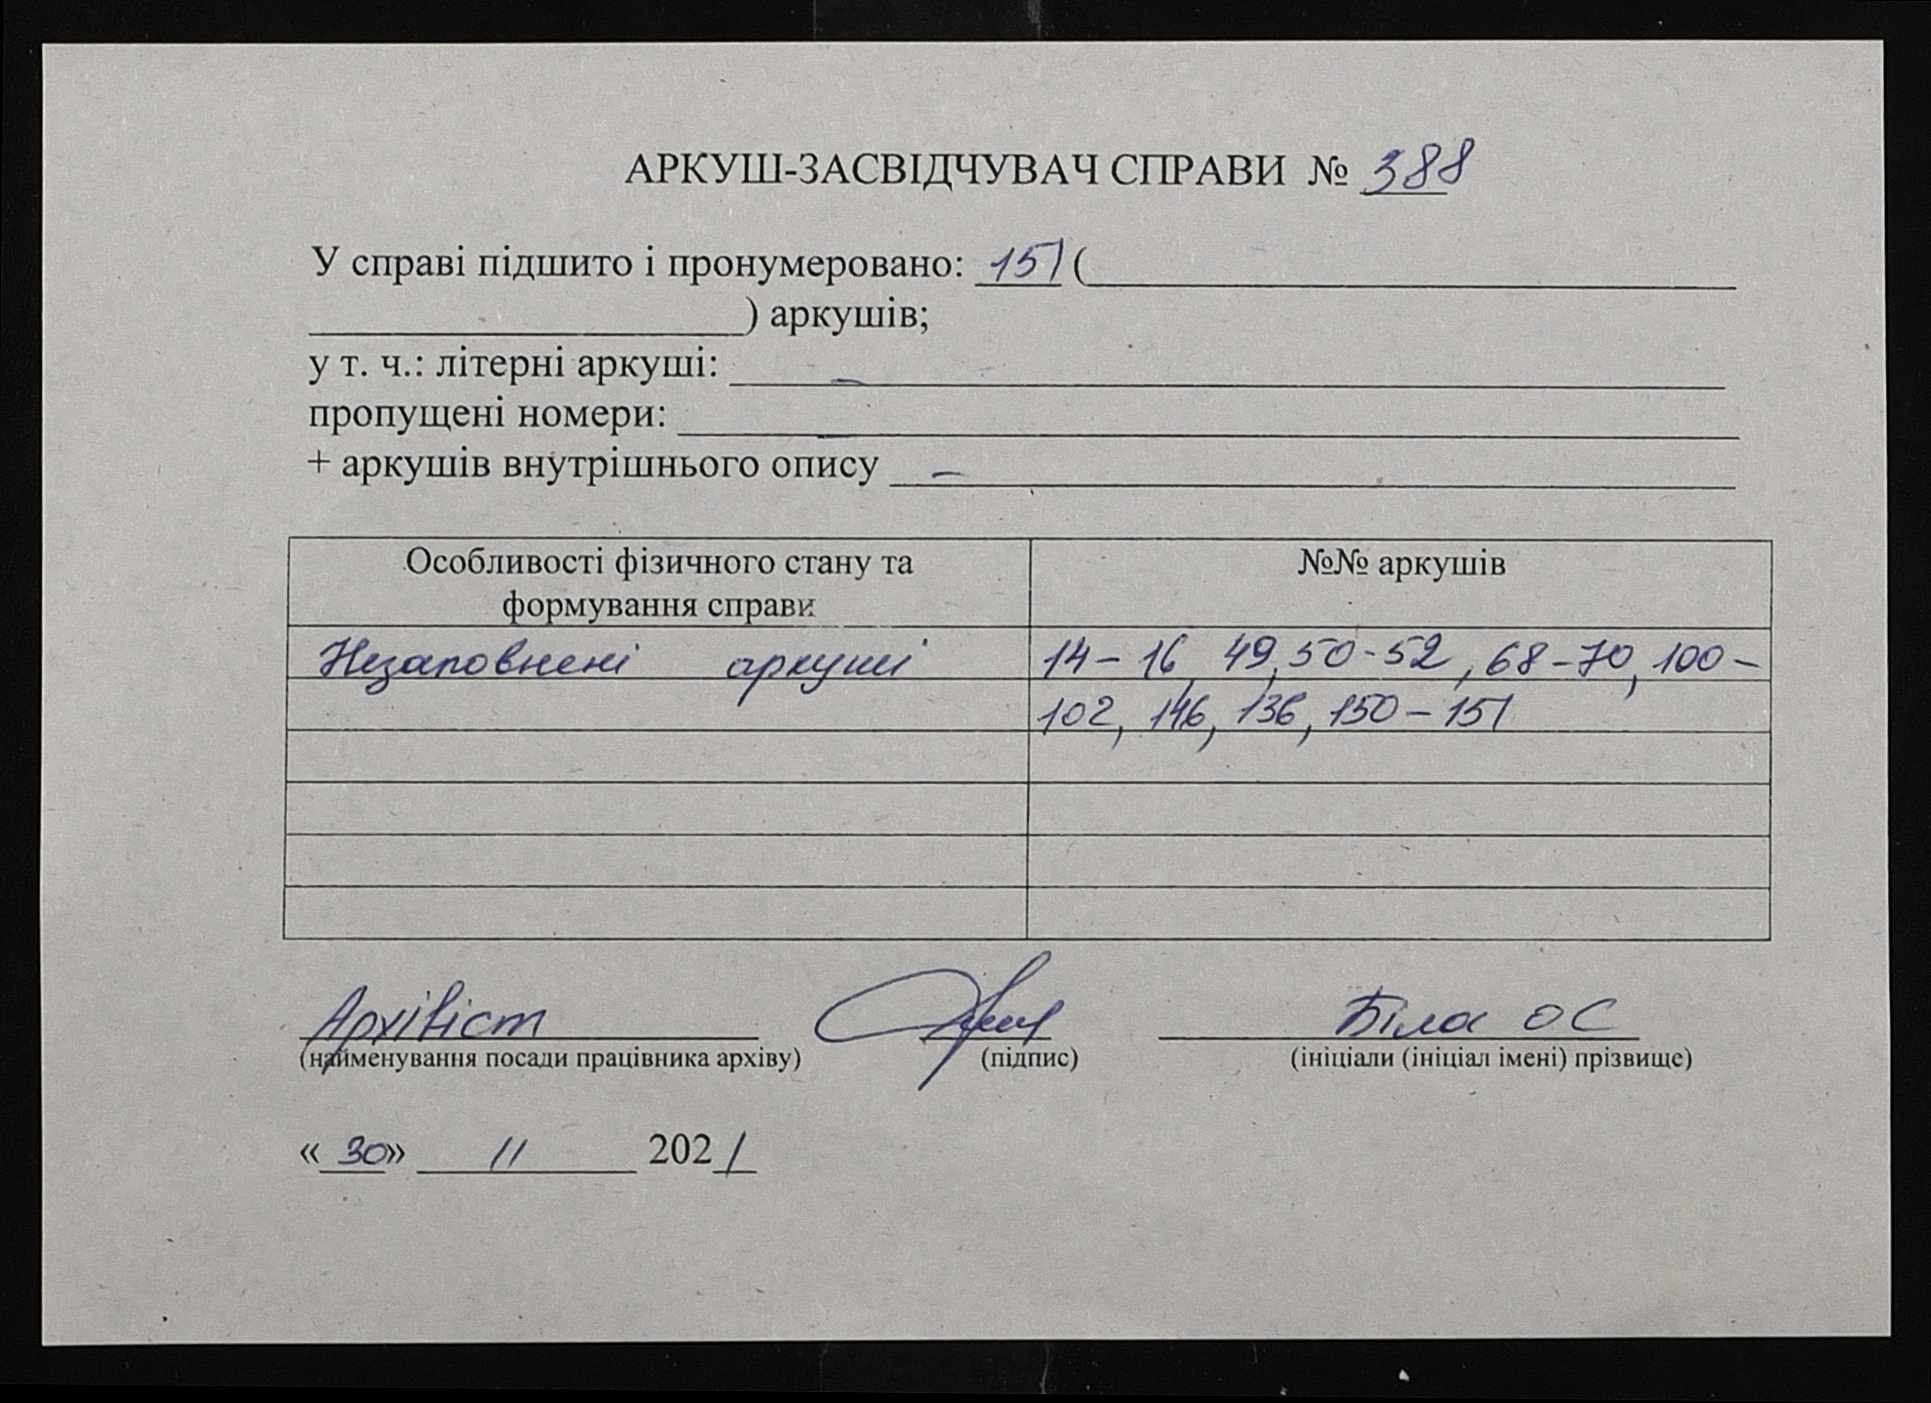 АРКУШ-ЗАСВІДЧУВАЧ СПРАВИ № 388
У справі підшито і пронумеровано: 151 (
) аркушів;
у т. ч.: літерні аркуші: –
пропущені номери: –
+ аркушів внутрішнього опису –
Особливості фізичного стану та
формування справи
№№ аркушів
Незаповнені аркуші 14–16, 49, 50-52, 68-70, 100–
102, 146, 136, 150–151
Архівіст Біла ОС
(найменування посади працівника архіву) (підпис) (ініціали (ініціал імені) прізвище)
«30» 11 2021